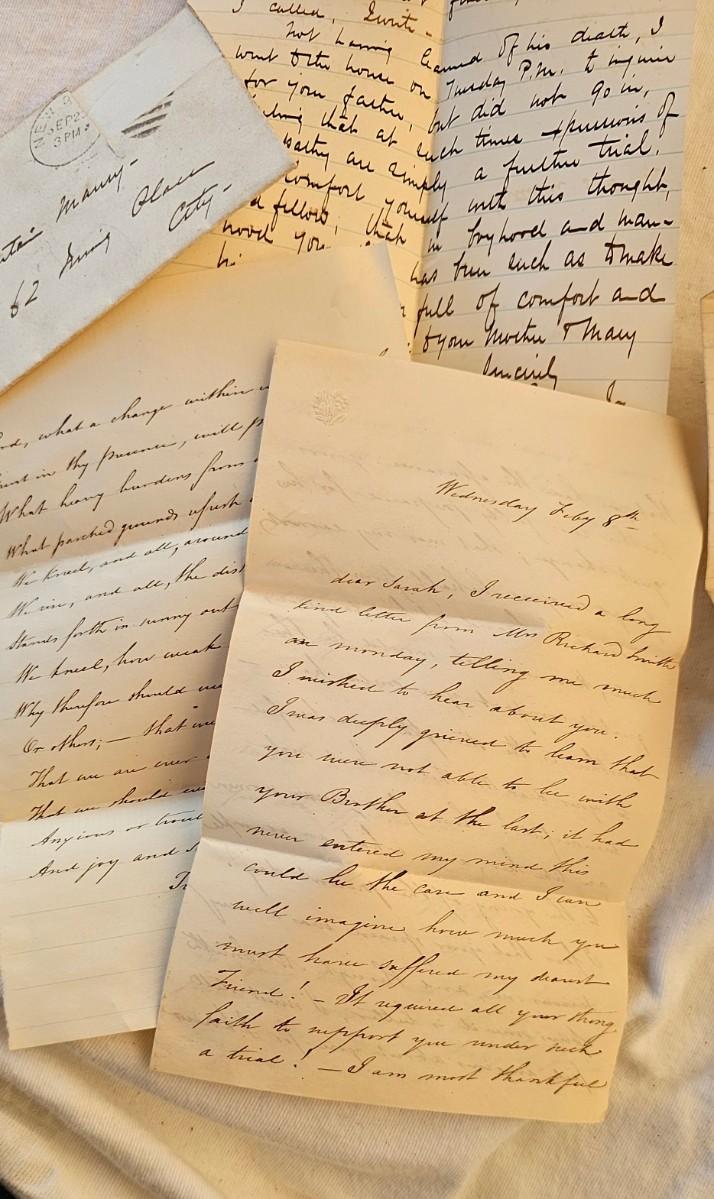 NEW
SEP 2
3 PM
Maury-
62 Irving Place
City-
I called, I write-
Not having learned of his death, I
went to the house on Tuesday P.M. to inquire
for your father, but did not go in,
that at such times expressions of
sympathy are simply a further trial.
comfort yourself with this thought,
fellow, that in boyhood and man-
hood you has been such as to make
full of comfort and
to your Mother & Mary
Sincerely
what a change within
in thy presence, will
What heavy burdens from
What parched grounds refresh
We kneel, and all, around
We rise, and all, the dis
Stands forth in sunny out
We kneel, how weak
Why therefore should we
Or others; — that we
That we are ever
That we should
Anxious or troub
And joy and
Wednesday Feby 8th
dear Sarah, I received a long
kind letter from Mrs Richard Smith
on monday, telling me much
I wished to hear about you.
I was deeply grieved to learn that
you were not able to be with
your Brother at the last; it had
never entered my mind this
could be the case and I can
well imagine how much you
must have suffered my dearest
Friend! - It required all your strong
faith to support you under such
a trial! — I am most thankful